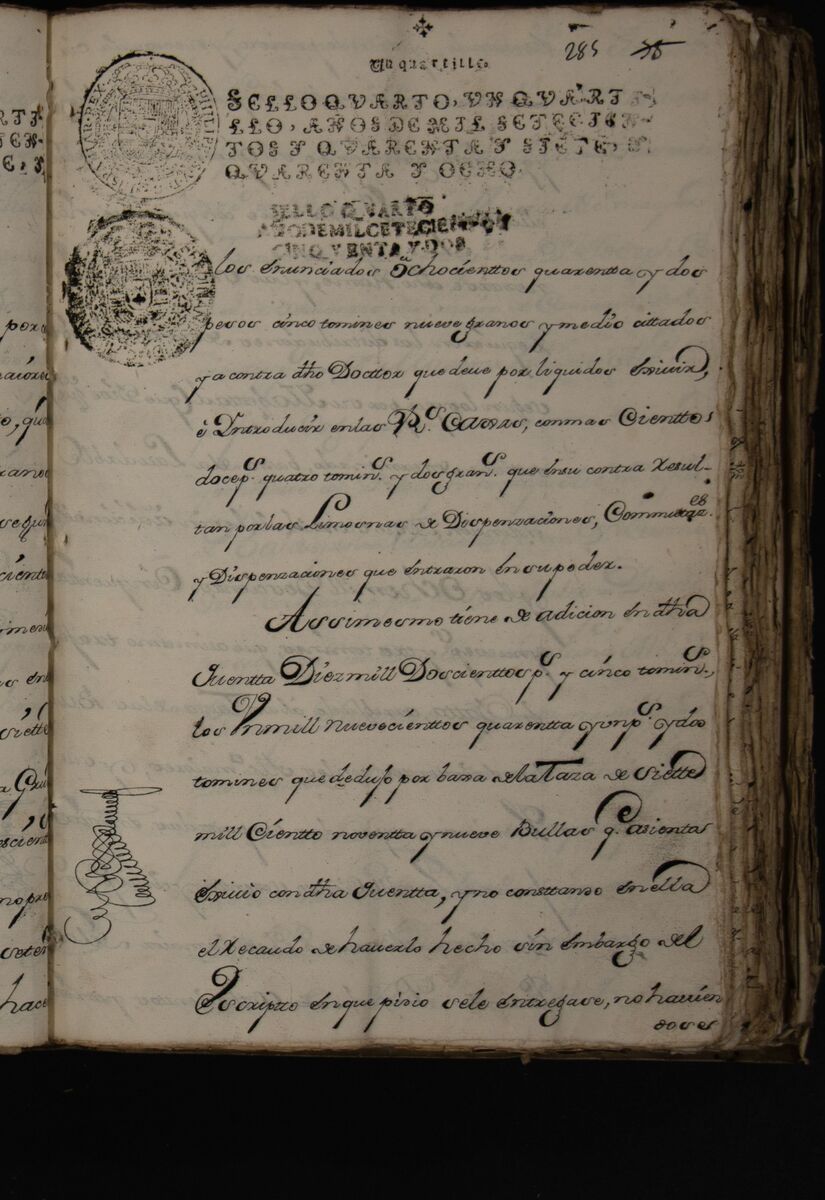 285
Un quartillo
SELLO QVARTO, VN QVARTI
LLO, AÑOS DE MIL SETECIEN-
TOS Y QVARENTA Y SIETE, Y
QVARENTA Y OCHO.
SELLO QVARTO
AÑO DE MIL CETECIENTOS Y
CINQVENTA Y DOS
los enunciados Ochocienttos quarentta y dos
pesos cinco tomines nueve granos y medio cittados
y a contra dho Docttor que deve por liquidos
è Introducir en las Rs. Caxas, con mas Cientto
doce ps. quatro tomins. y dos grans. que en su contra resul-
tan por las Limosnas de Dispenzaciones,
y Dispenzaciones que entraron en su poder.
Assimesmo tiene de adicion en dha
Quentta Diez mill Doscienttos ps. y cinco tomins.,
los Un mill nuevecienttos quarentta y un ps. y dos
tomines que dedujo por baxa de la Taza de Siette
mill Cientto noventta y nueve Bullas q. asienta
con dha Quentta, y no consttando en ella
el recaudo de haverlo hecho sin embargo del
Escriptto en que pidio se le entregase, no havien
dose